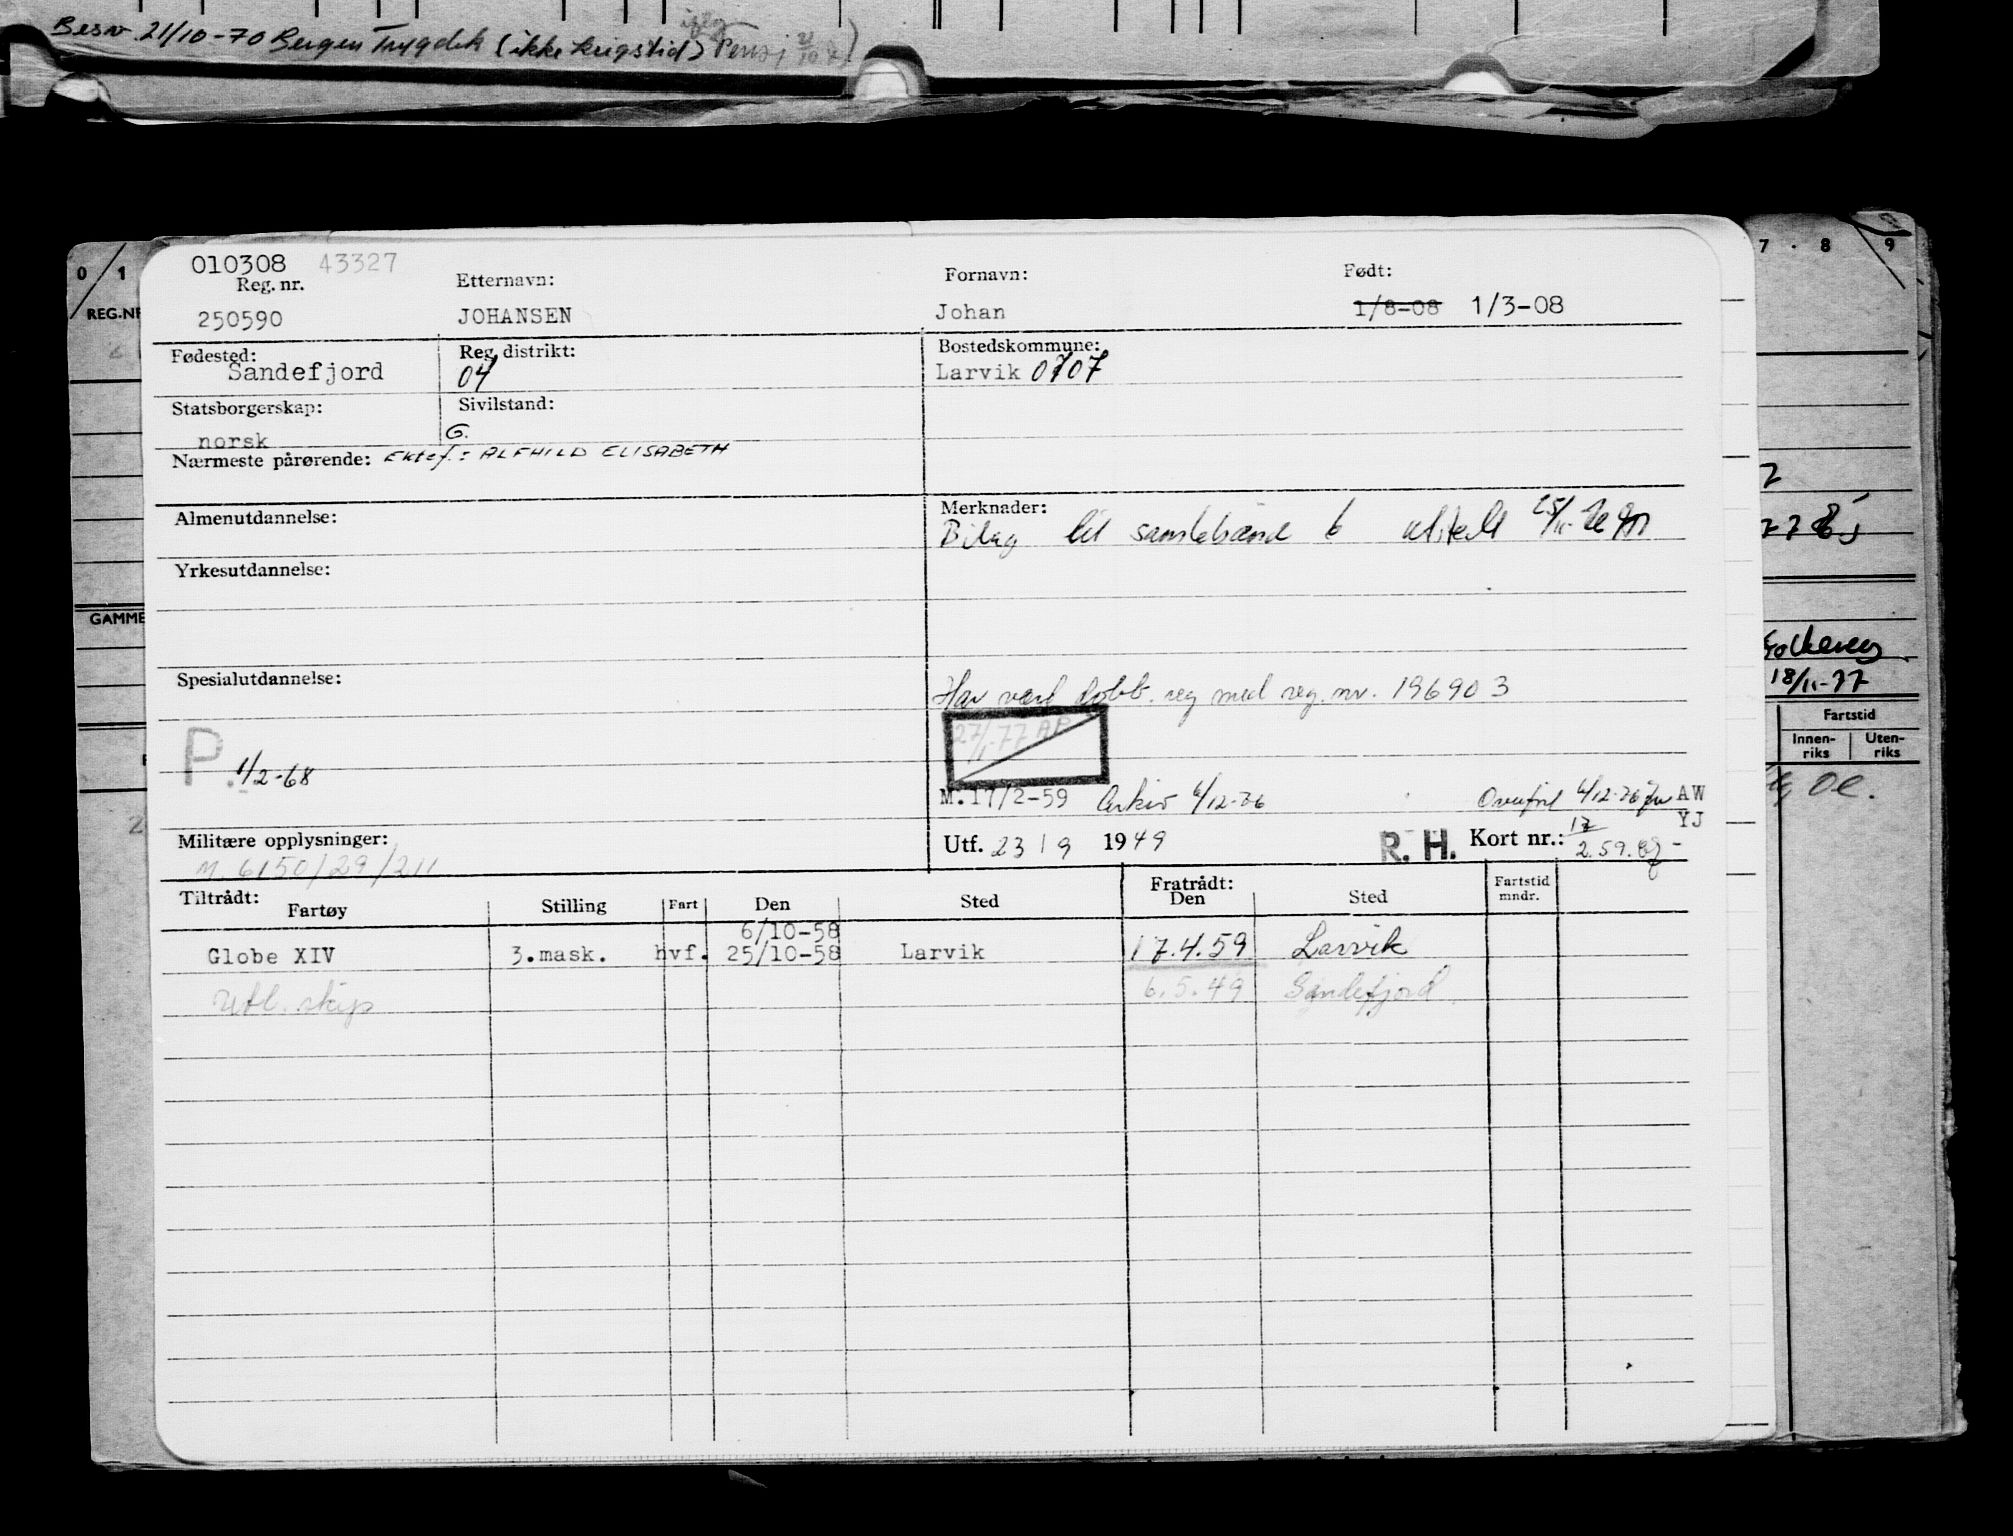 Besv. 21/10-70 Bergen Trygdek (ikke krigstid)
0 1
7 . 8 9
REG.NR
010308 43327
Reg. nr.
250590
Etternavn:
JOHANSEN
Fornavn:
Johan
Født:
1/8-08 1/3-08
Fødested:
Sandefjord
Reg. distrikt:
04
Bostedskommune:
Larvik 0707
Statsborgerskap:
norsk
Sivilstand:
G.
Nærmeste pårørende: Ektef.: ALFHILD ELISABETH
Almenutdannelse:
Merknader:
Bilag til
Yrkesutdannelse:
GAMME
Spesialutdannelse:
Har vært dobb. reg med reg. nr. 196903
27/1-77 AP
P. 1/2-68
M.17/2-59 Arkiv 6/12-76
Overført 6/12-76 AW
YJ
Militære opplysninger:
M 6150/29/211
Utf. 23/9 1949
R. H. Kort nr.: 17
2.59.
18/11-77
Fartstid
Innen-
riks
Uten-
riks
Tiltrådt:
Fartøy
Stilling
Fart
Den
Sted
Fratrådt:
Den
Sted
Fartstid
mndr.
6/10-58
Globe XIV 3.mask. hvf. 25/10-58 Larvik 17.4.59 Larvik
Utl. skip 6.5.49 Sandefjord